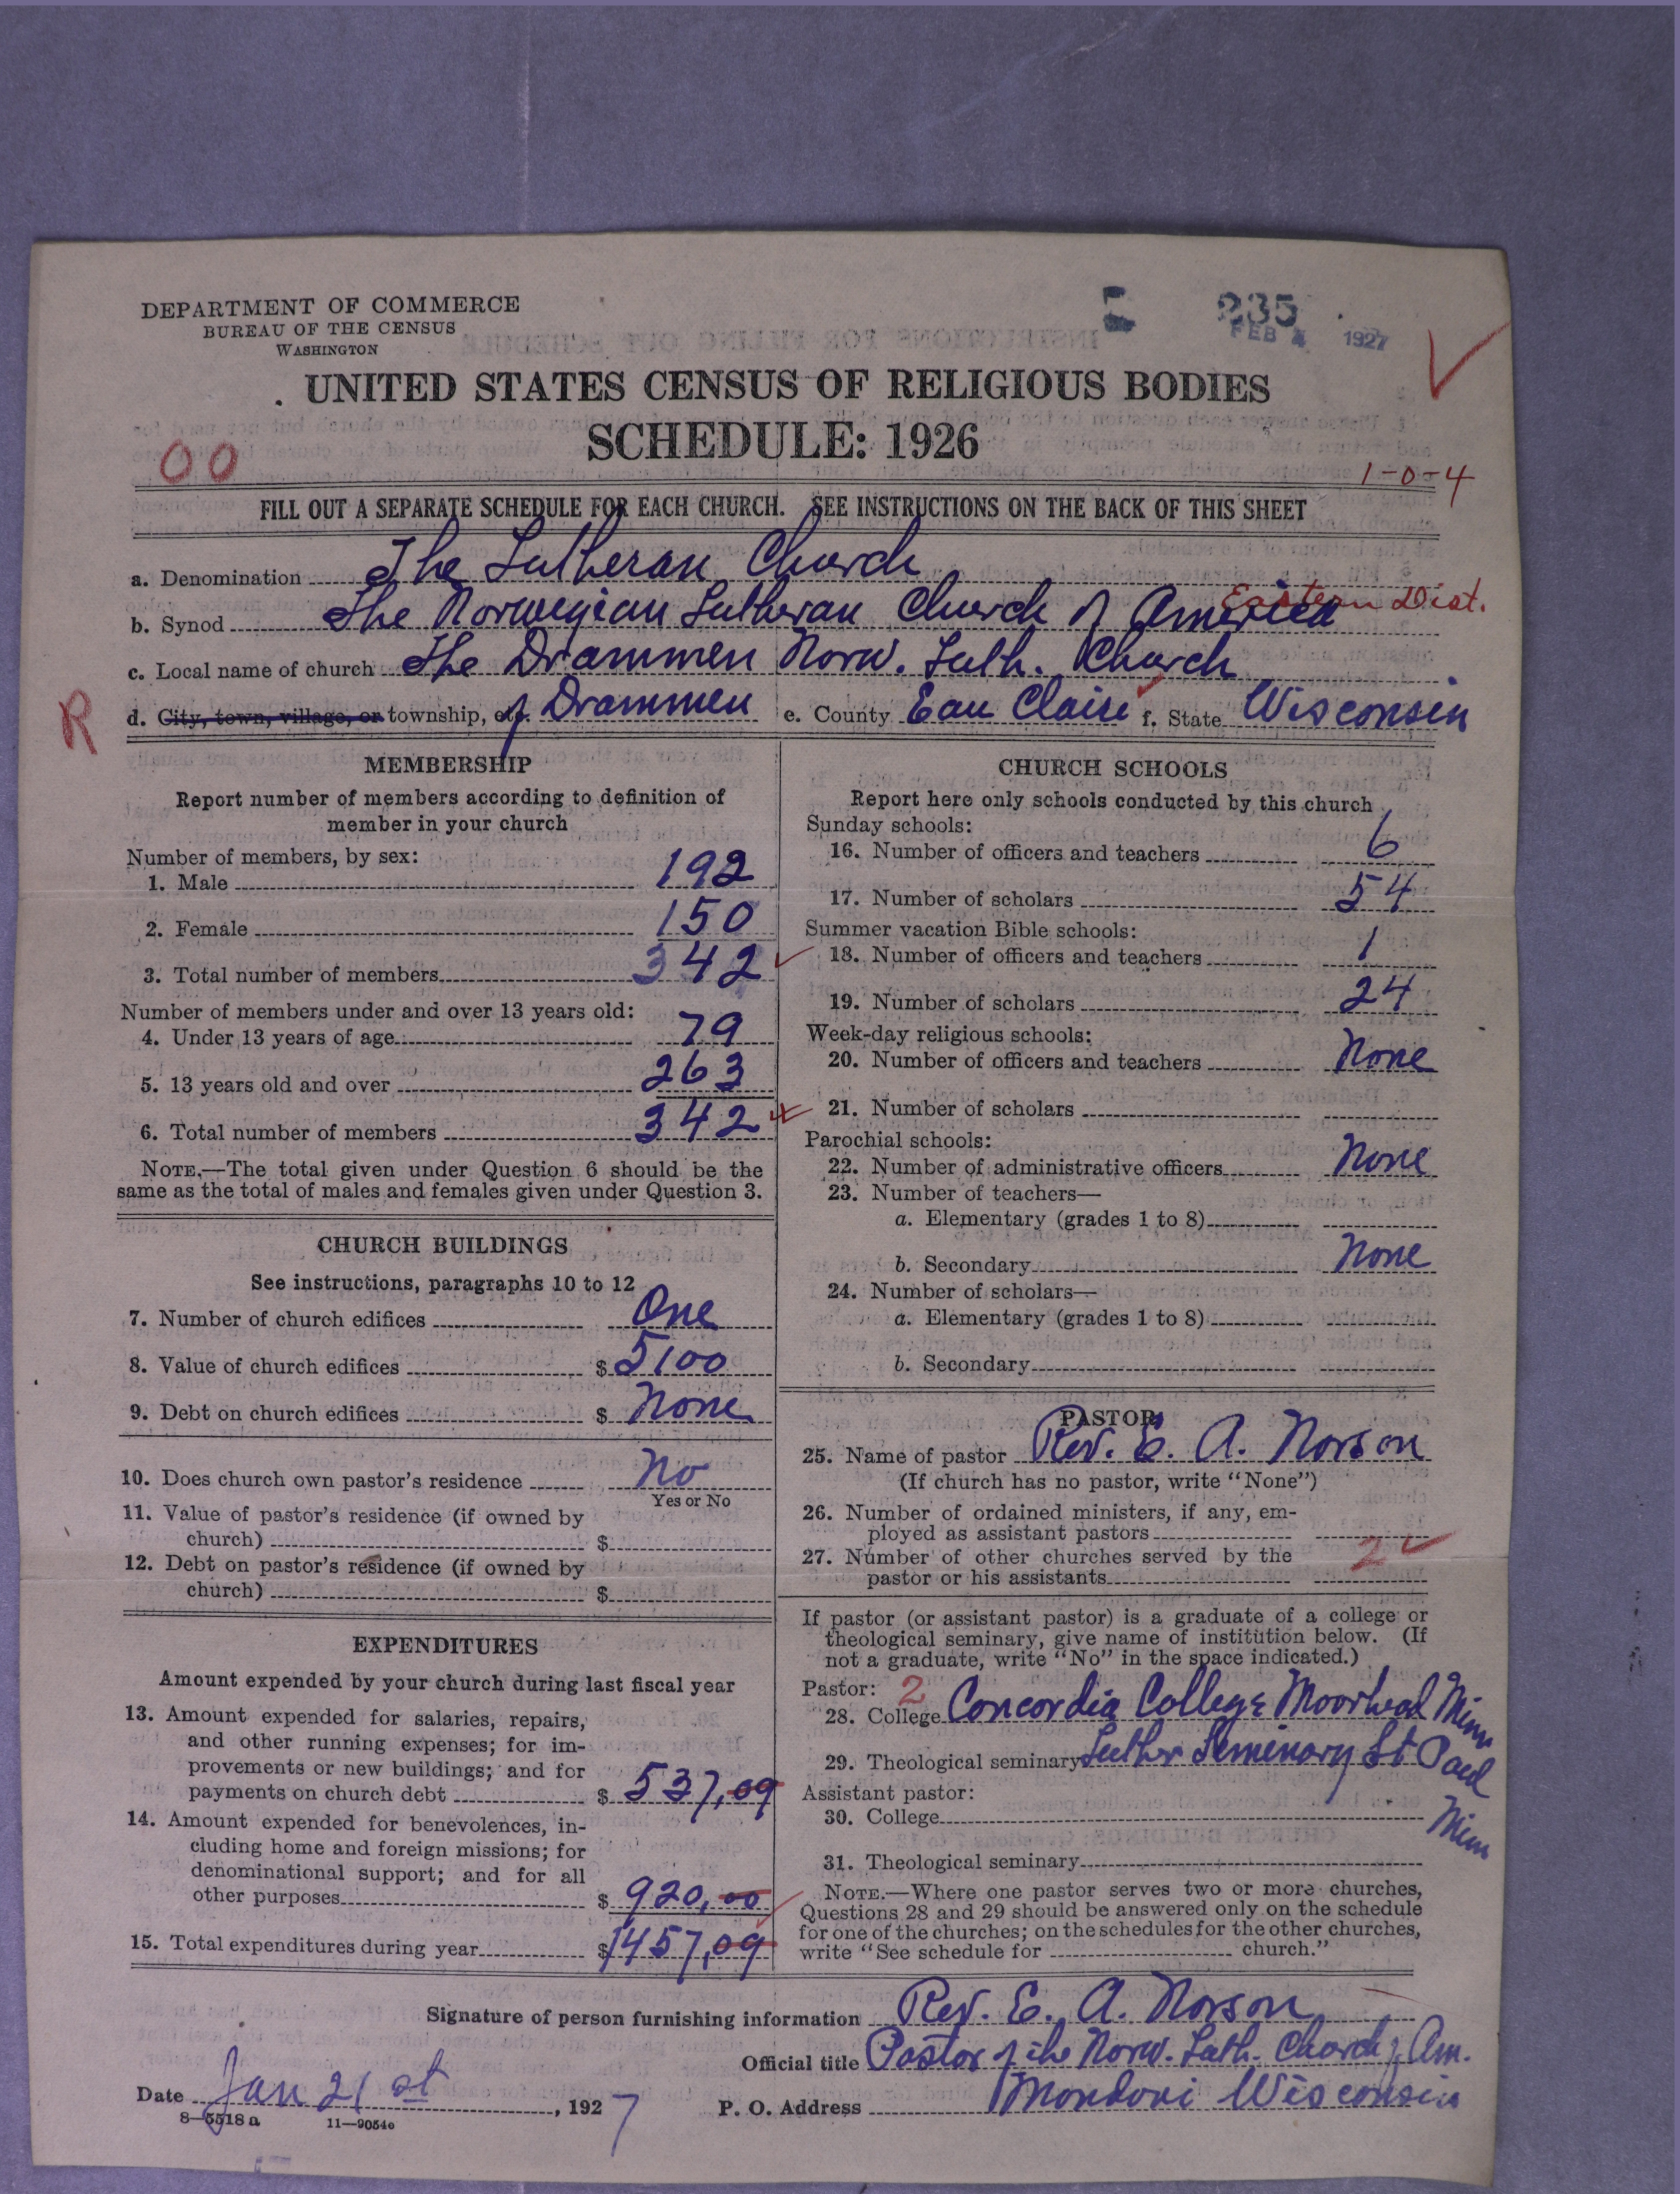 DEPARTMENT OF COMMERCE
BUREAU OF THE CENSUS
WASHINGTON
235
FEB 4 1927
UNITED STATES CENSUS OF RELIGIOUS BODIES
SCHEDULE: 1926
00
1-0-4
FILL OUT A SEPARATE SCHEDULE FOR EACH CHURCH. SEE INSTRUCTIONS ON THE BACK OF THIS SHEET
a. Denomination The Lutheran Church
Eastern Dist.
b. Synod The Norwegian Lutheran Church of America
c. Local name of church The Drammen Norw. Luth. Church
R
d. City, town, village, or township, etc. of Drammen e. County Eau Claire f. State Wisconsin
MEMBERSHIP
Report number of members according to definition of
member in your church
Number of members, by sex:
1. Male 192
2. Female 150
3. Total number of members 342
Number of members under and over 13 years old:
4. Under 13 years of age 79
5. 13 years old and over 263
6. Total number of members 342
NOTE.—The total given under Question 6 should be the
same as the total of males and females given under Question 3.
CHURCH BUILDINGS
See instructions, paragraphs 10 to 12
7. Number of church edifices One
8. Value of church edifices $ 5100
9. Debt on church edifices $ None
10. Does church own pastor's residence No
Yes or No
11. Value of pastor's residence (if owned by
church) $
12. Debt on pastor's residence (if owned by
church) $
EXPENDITURES
Amount expended by your church during last fiscal year
13. Amount expended for salaries, repairs,
and other running expenses; for im-
provements or new buildings; and for
payments on church debt $ 537,09
14. Amount expended for benevolences, in-
cluding home and foreign missions; for
denominational support; and for all
other purposes $ 920,00
15. Total expenditures during year $ 1457,09
CHURCH SCHOOLS
Report here only schools conducted by this church
Sunday schools:
16. Number of officers and teachers 6
17. Number of scholars 54
Summer vacation Bible schools:
18. Number of officers and teachers 1
19. Number of scholars 24
Week-day religious schools:
20. Number of officers and teachers None
21. Number of scholars
Parochial schools:
22. Number of administrative officers None
23. Number of teachers—
a. Elementary (grades 1 to 8)
b. Secondary None
24. Number of scholars—
a. Elementary (grades 1 to 8)
b. Secondary
PASTOR
25. Name of pastor Rev. E. A. Norson
(If church has no pastor, write "None")
26. Number of ordained ministers, if any, em-
ployed as assistant pastors
27. Number of other churches served by the
pastor or his assistants 2
If pastor (or assistant pastor) is a graduate of a college or
theological seminary, give name of institution below. (If
not a graduate, write "No" in the space indicated.)
Pastor: 2
28. College Concordia College Moorhead Minn
29. Theological seminary Luther Seminary St. Paul
Minn
Assistant pastor:
30. College
31. Theological seminary
NOTE.—Where one pastor serves two or more churches,
Questions 28 and 29 should be answered only on the schedule
for one of the churches; on the schedules for the other churches,
write "See schedule for church."
Signature of person furnishing information Rev. E. A. Norson
Official title Pastor of the Norw. Luth. Church of Am.
Date Jan 21st, 1927
P. O. Address Mondovi Wisconsin
8—5518a 11—9054c